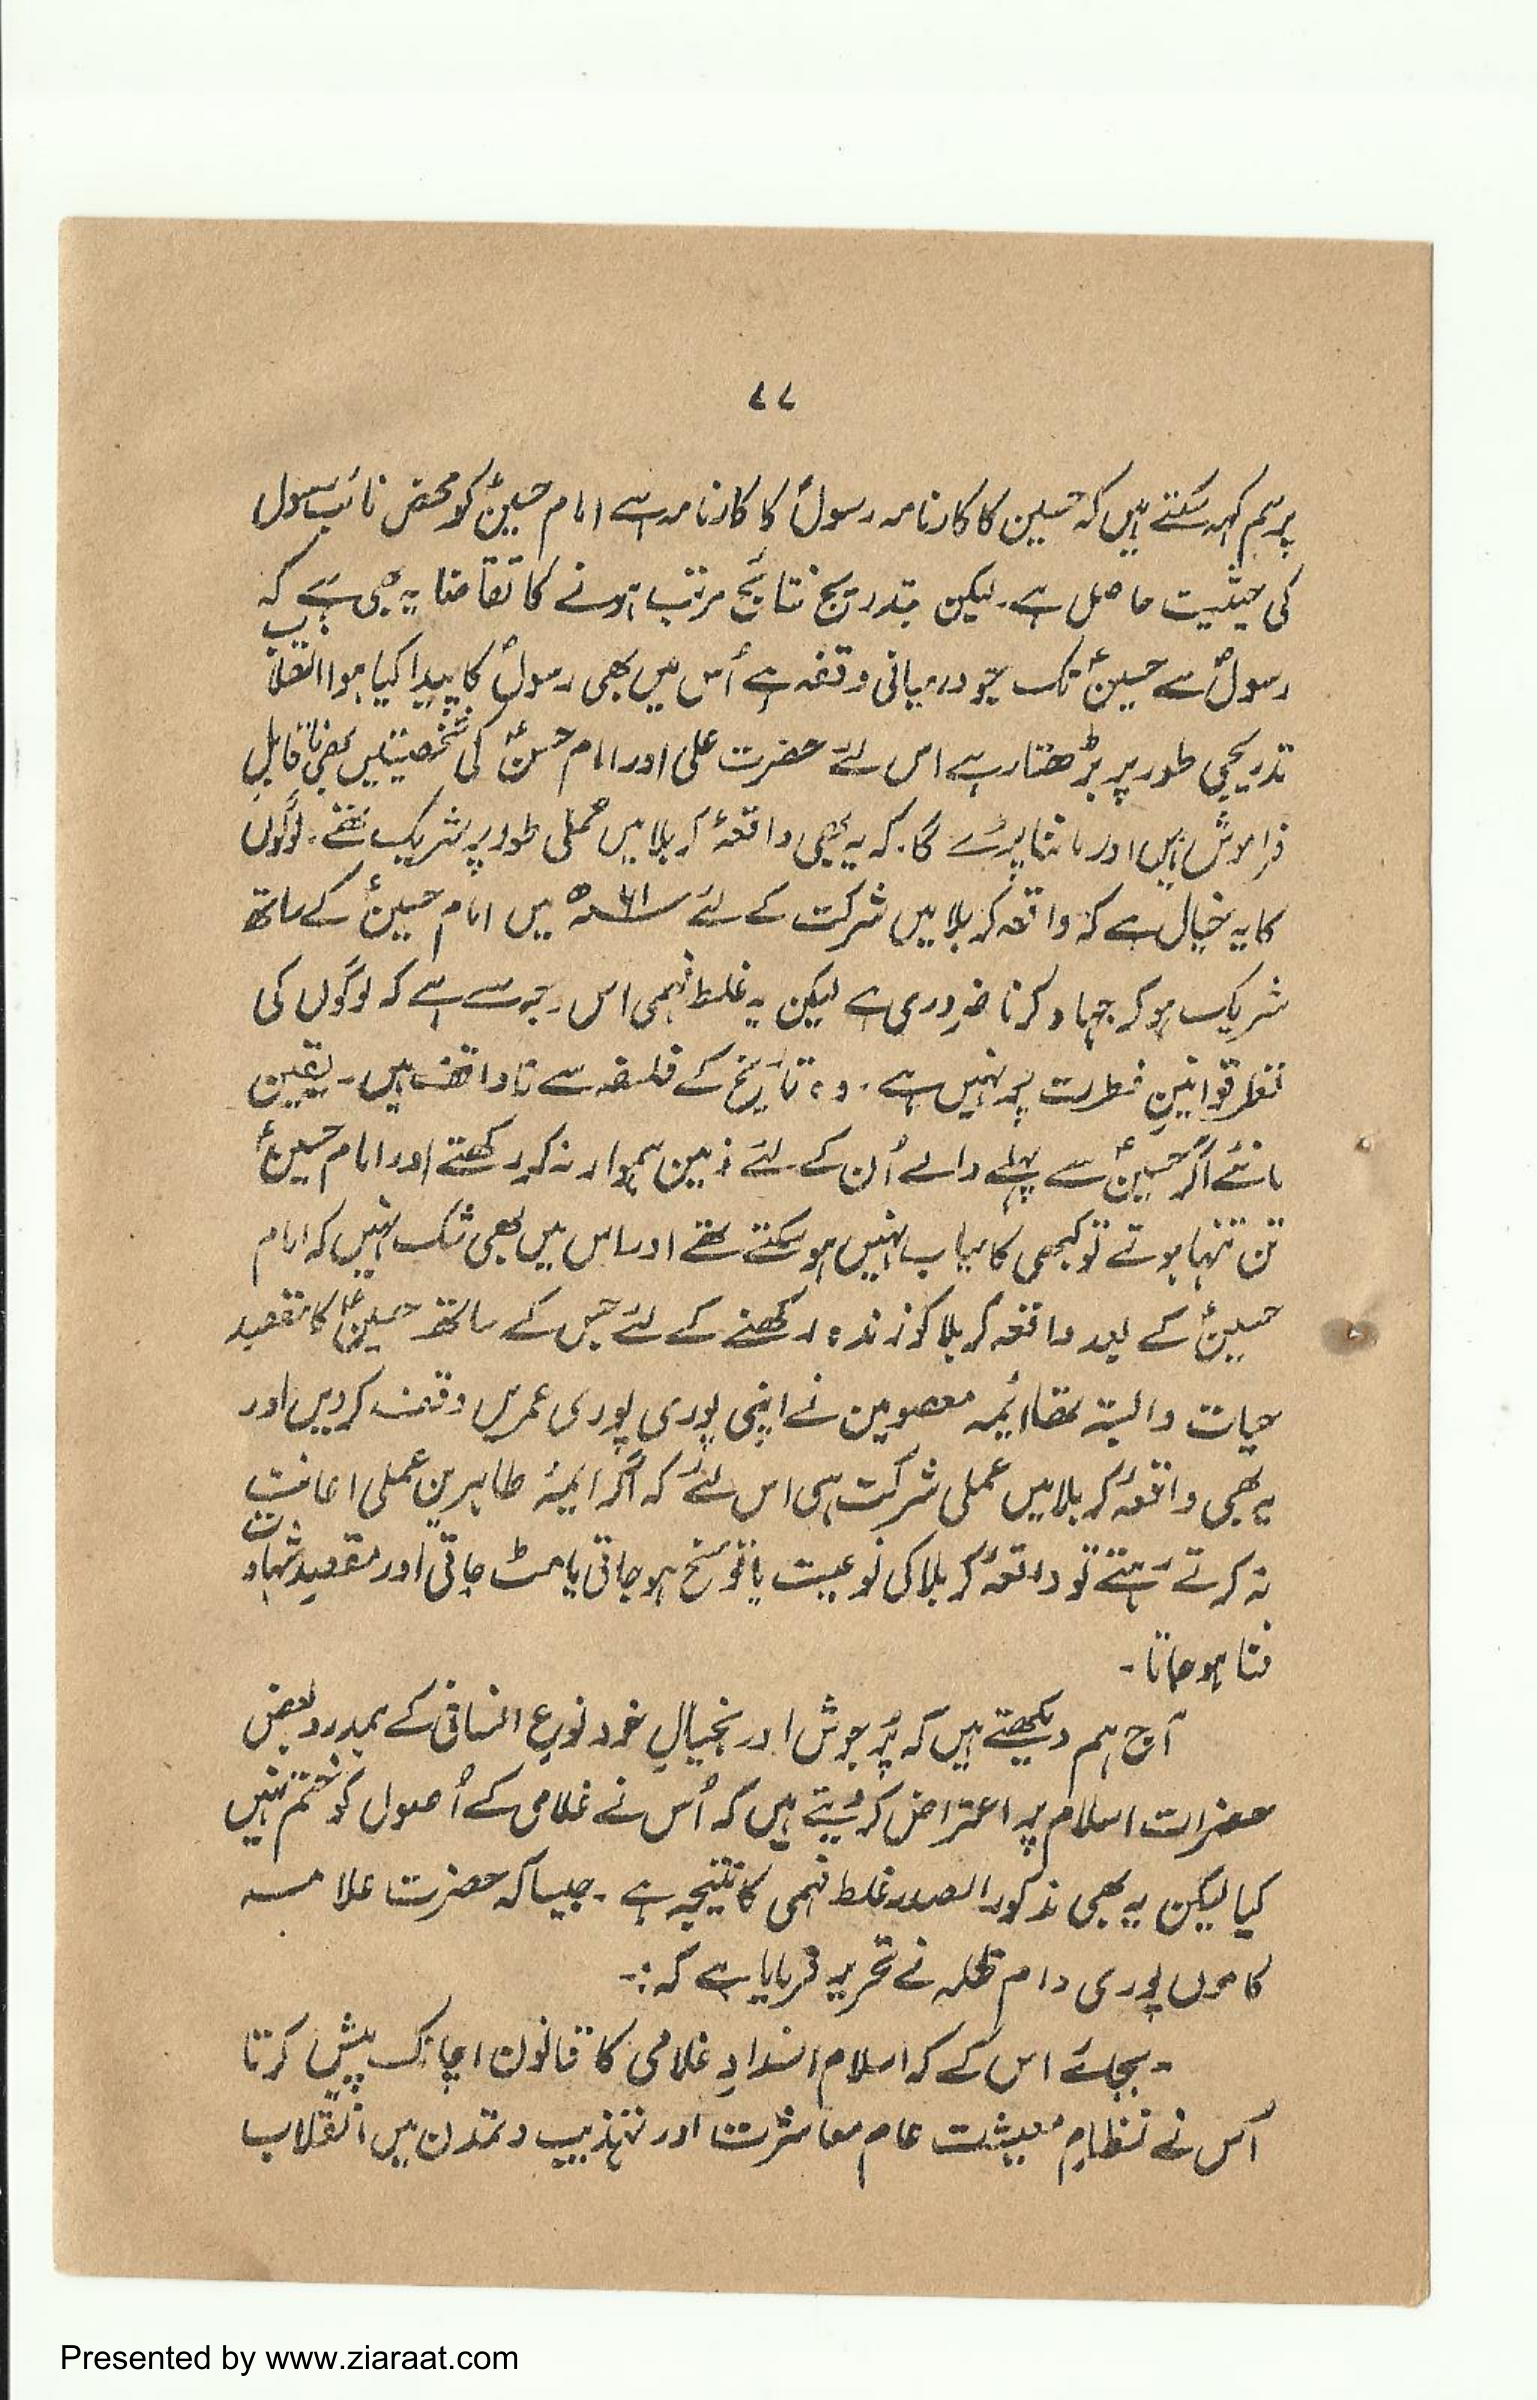 ۷۷
پر ہم کہہ سکتے ہیں کہ حسین کا کارنامہ رسولؐ کا کارنامہ ہے امام حسینؑ کو محض نائب رسول
کی حیثیت حاصل ہے۔ لیکن بتدریج نتائج مرتب ہونے کا تقاضا یہ بھی ہے کہ
رسولؐ سے حسینؑ تک جو درمیانی وقفہ ہے اُس میں بھی رسولؐ کا پیدا کیا ہوا انقلاب
تدریجی طور پر بڑھتا رہے اس لئے حضرت علی اور امام حسنؑ کی شخصیتیں بھی ناقابلِ
فراموش ہیں اور ماننا پڑے گا۔ کہ یہ بھی واقعۂ کربلا میں عملی طور پر شریک تھے۔ لوگوں
کا یہ خیال ہے کہ واقعہ کربلا میں شرکت کے لئے ۶۱ھ میں امام حسینؑ کے ساتھ
شریک ہو کر جہاد کرنا ضروری ہے لیکن یہ غلط فہمی اس وجہ سے ہے کہ لوگوں کی
نظر قوانینِ فطرت پر نہیں ہے۔ وہ تاریخ کے فلسفہ سے ناواقف ہیں۔ یقین
مانئے اگر حسینؑ سے پہلے والے اُن کے لئے زمین ہموار نہ کر رکھتے اور امام حسینؑ
تن تنہا ہوتے تو کبھی کامیاب نہیں ہو سکتے تھے اور اس میں بھی شک نہیں کہ امام
حسینؑ کے بعد واقعہ کربلا کو زندہ رکھنے کے لئے جس کے ساتھ حسینؑ کا مقصد
حیات وابستہ تھا ائمہ معصومین نے اپنی پوری پوری عمریں وقف کر دیں اور
یہ بھی واقعۂ کربلا میں عملی شرکت ہی اس لئے کہ اگر ائمۂ طاہرین عملی اعانت
نہ کرتے رہتے تو واقعۂ کربلا کی نوعیت یا تو مسخ ہو جاتی یا مٹ جاتی اور مقصدِ شہادت
فنا ہو جاتا۔
آج ہم دیکھتے ہیں کہ پُر جوش اور بخیالِ خود نوعِ انسانی کے ہمدرد بعض
حضرات اسلام پر اعتراض کر دیتے ہیں کہ اُس نے غلامی کے اُصول کو ختم نہیں
کیا لیکن یہ بھی مذکور الصدر غلط فہمی کا نتیجہ ہے۔ جیسا کہ حضرت علامہ
کاموں پوری دام ظلہ نے تحریر فرمایا ہے کہ :-
۔بجائے اس کے کہ اسلام انسدادِ غلامی کا قانون اچانک پیش کرتا
اُس نے نظامِ معیشت عام معاشرت اور تہذیب و تمدن میں انقلاب
Presented by www.ziaraat.com